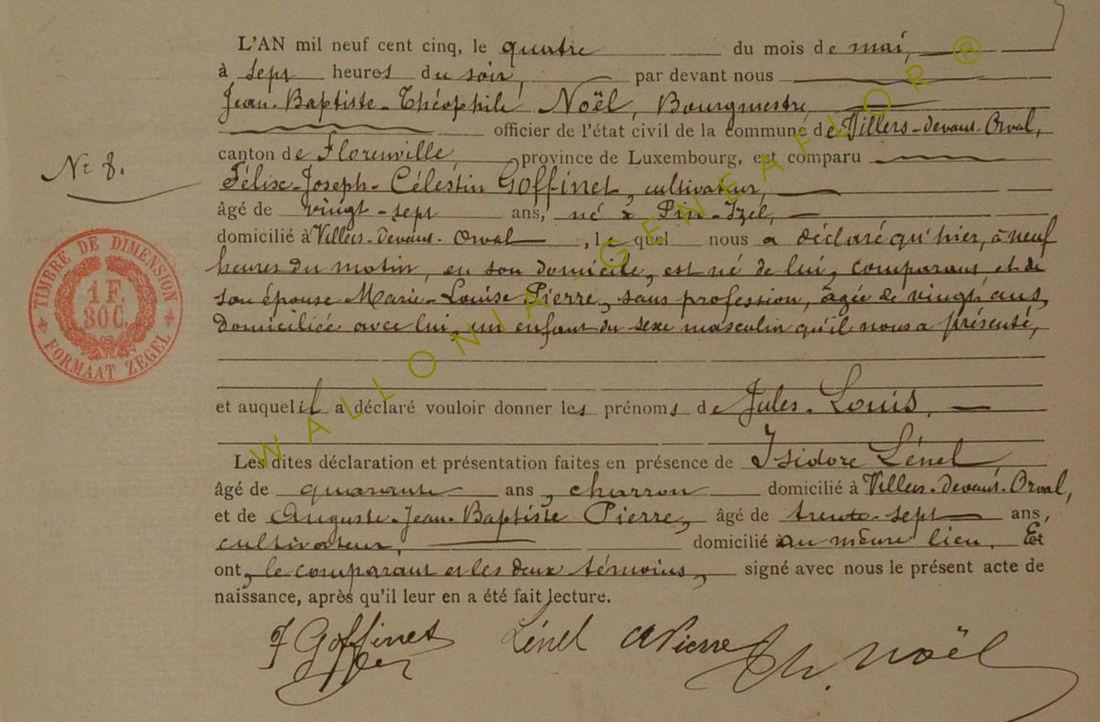 L'AN mil neuf cent cinq, le quatre du mois de mai,
à sept heures du soir, par devant nous
Jean-Baptiste-Théophile Noël, Bourgmestre,
officier de l'état civil de la commune de Villers-devant-Orval,
canton de Florenville, province de Luxembourg, est comparu
N° 8.
Félix-Joseph-Célestin Goffinet, cultivateur,
âgé de vingt-sept ans, né à Pin-Izel,
domicilié à Villers-devant-Orval, lequel nous a déclaré qu'hier, à neuf
heures du matin, en son domicile, est né de lui, comparant et de
son épouse Marie-Louise Pierre, sans profession, âgée de vingt ans,
domiciliée avec lui, un enfant du sexe masculin qu'il nous a présenté,
TIMBRE DE DIMENSION
1 F.
30 C.
FORMAAT ZEGEL
et auquel il a déclaré vouloir donner les prénoms de Jules-Louis,
Les dites déclaration et présentation faites en présence de Isidore Lénel
âgé de quarante ans, charron domicilié à Villers-devant-Orval,
et de Auguste-Jean-Baptiste Pierre, âgé de trente-sept ans,
cultivateur, domicilié au même lieu. Et
ont, le comparant et les deux témoins, signé avec nous le présent acte de
naissance, après qu'il leur en a été fait lecture.
Goffinet Lénel A Pierre Th. Noël
WALLONIA-GENEAFLOR ®